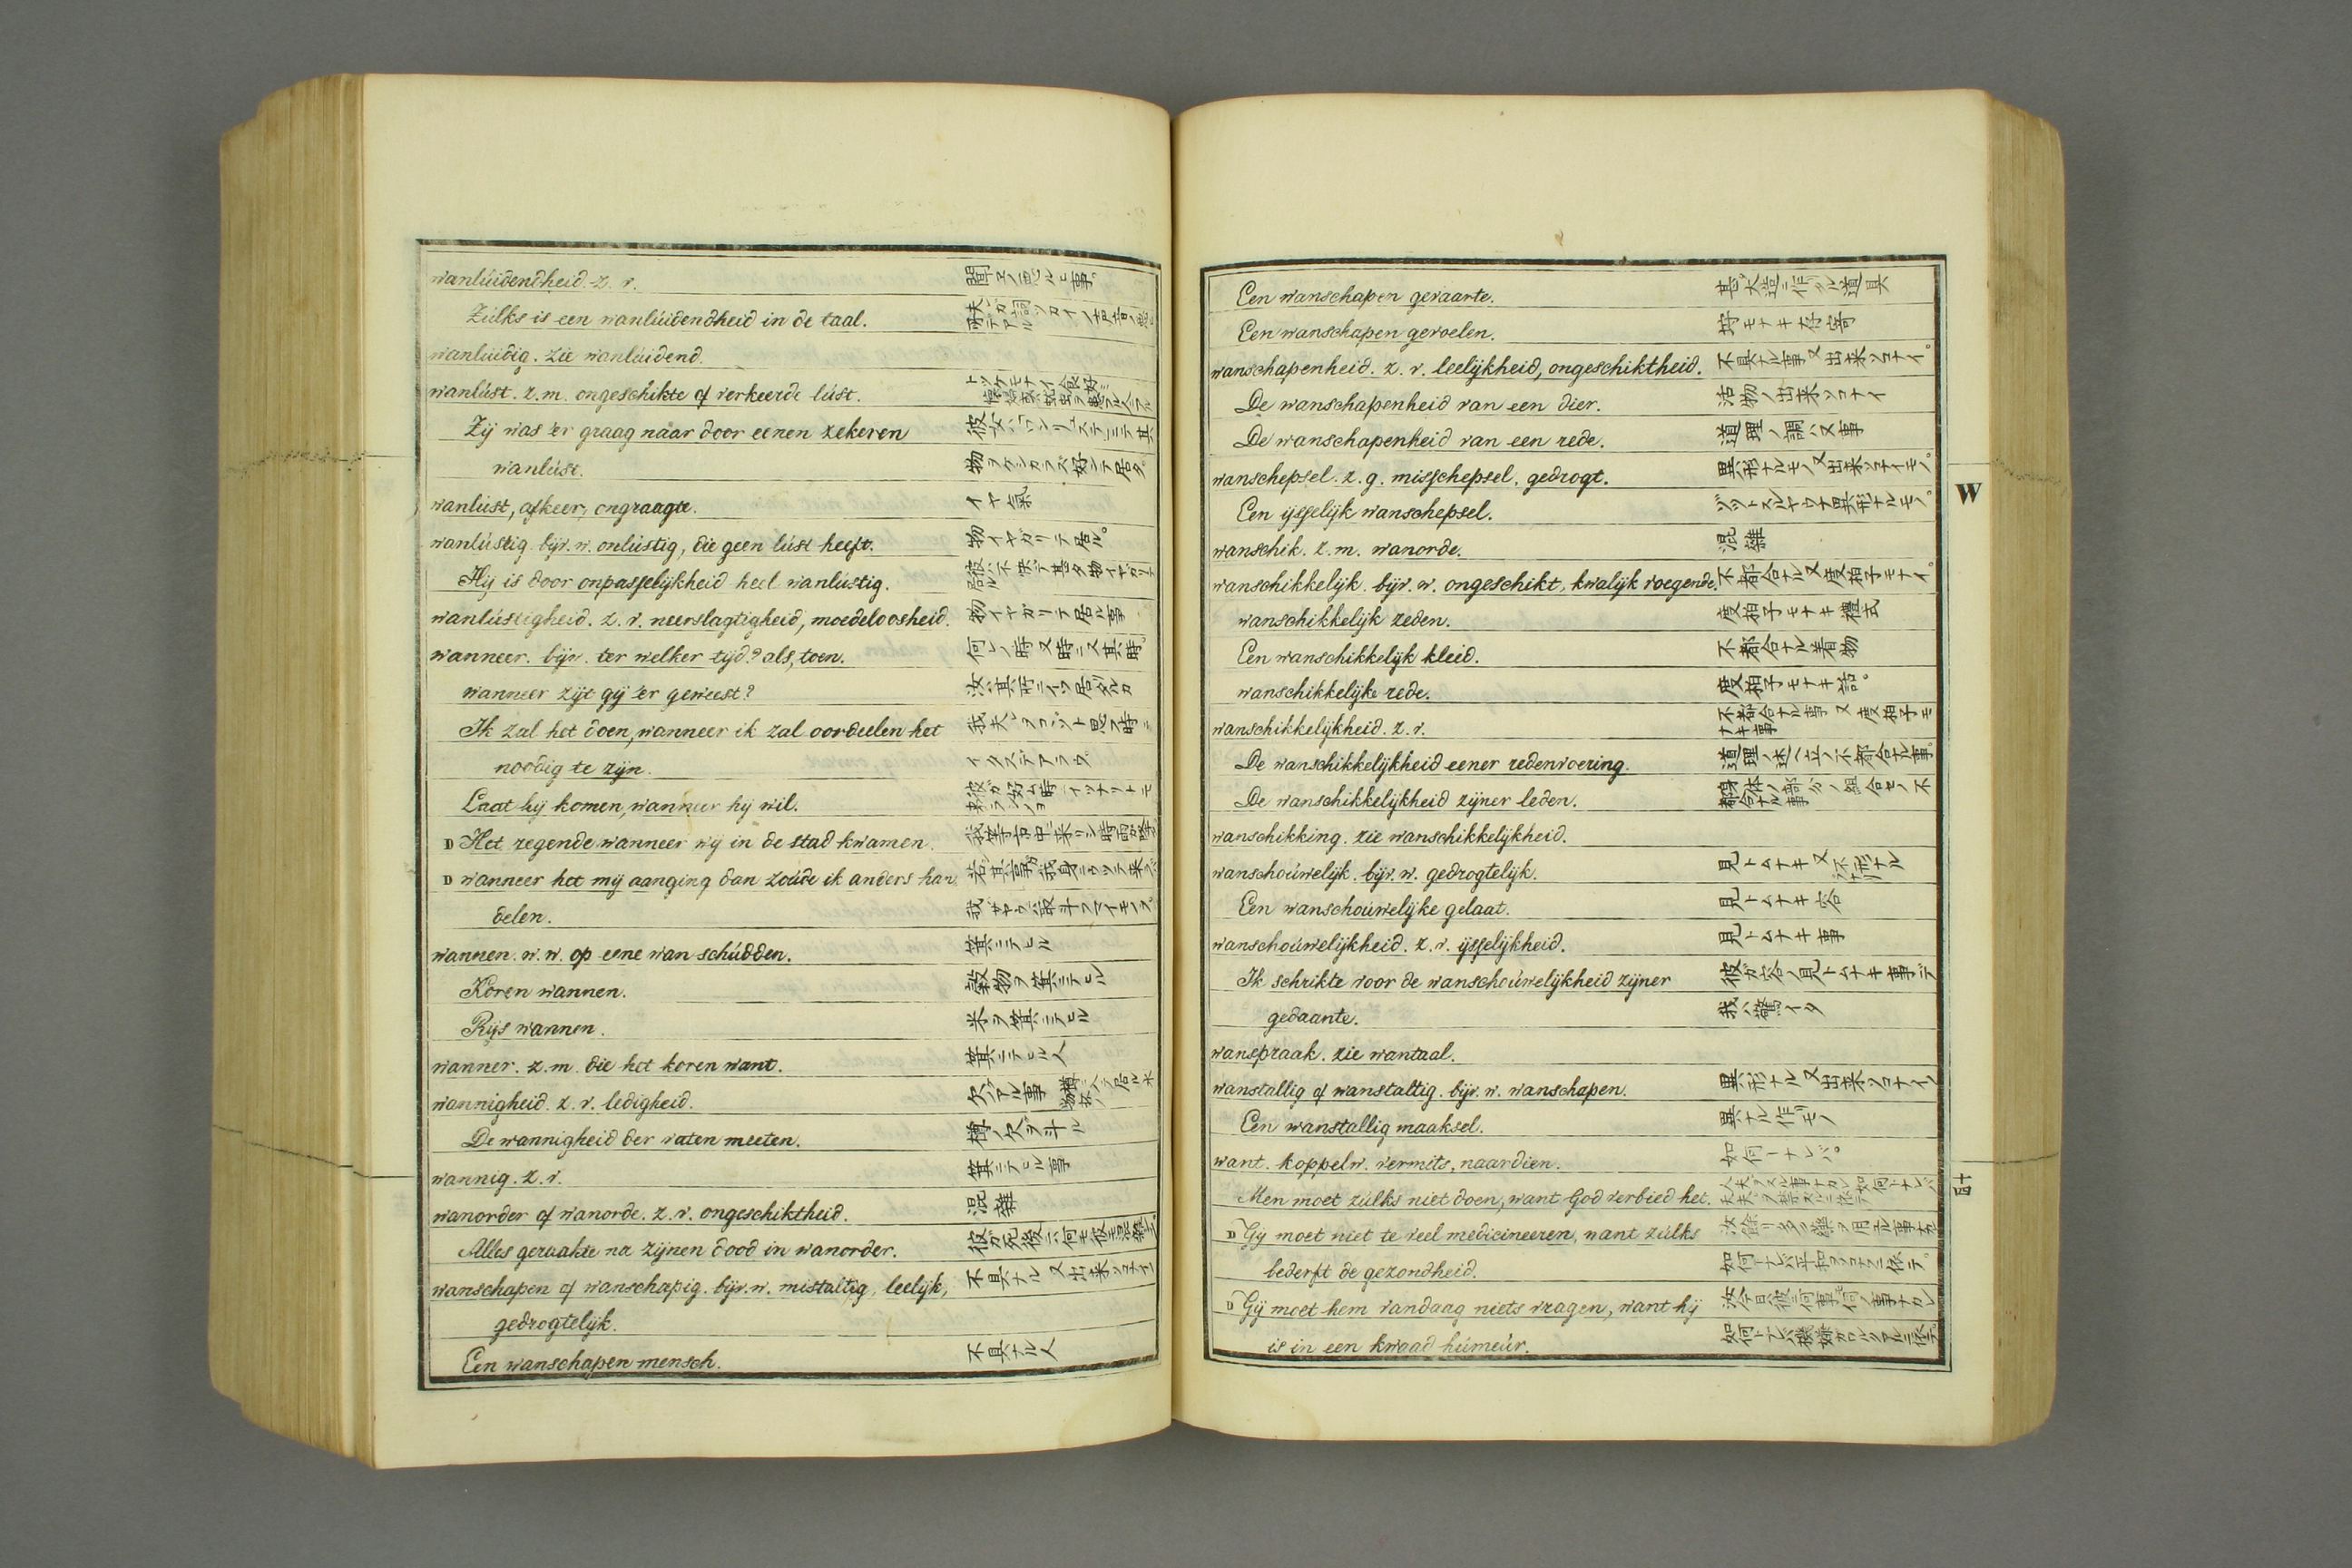 wanlúidendheid. z. v.
Zúlks is een wanlúidendheid in de taal.
wanlúidig. zie wanlúidend.
wanlúst. z. m. ongeschikte of verkeerde lúst.
Zij was 'er graag naar door eenen zekeren
wanlúst.
wanlúst, afkeer, ongraagte. イヤ氣
wanlústig. bijv. w. onlústig, die geen lúst heeft. 物イヤガリテ居ル。
Hij is door onpasselijkheid heel wanlústig.
wanlústigheid. z. v. neerslagtigheid, moedeloosheid. 物イヤガリテ居ル事
wanneer. bijw. ter welker tijd? als, toen. 何レノ時又時ニ又其時
wanneer zijt gij 'er geweest?
Ik zal het doen, wanneer ik zal oordeelen het
noodig te zijn.
Laat hij komen, wanneer hij wil.
D Het regende wanneer wij in de stad kwamen.
D wanneer het mij aanging dan zoúde ik anders han
delen.
wannen. w. w. op eene wan schúdden. 箕ニテヒル
Koren wannen. 穀物ヲ箕ニテヒル
Rijs wannen. 米ヲ箕ニテヒル
wanner. z. m. die het koren want. 箕ニテヒル人
wannigheid. z. v. ledigheid.
De wannigheid der vaten meeten. 樽ノ欠ヲ斗ル
wannig. z. v. 箕ニテヒル事
wanorder of wanorde. z. v. ongeschiktheid. 混雜
Alles geraakte na zijnen dood in wanorder.
wanschapen of wanschapig. bijv. w. mistaltig, leelijk, 不具ナル 又出来ソコナイ
gedrogtelijk.
Een wanschapen mensch. 不具ナル人
Een wanschapen gevaarte. 甚大造ニ作タル道具
Een wanschapen gevoelen.
wanschapenheid. z. v. leelijkheid, ongeschiktheid. 不具ナル事又出来ソコナイ。
De wanschapenheid van een dier. 活物ノ出来ソコナイ
De wanschapenheid van een rede. 道理ノ調ハヌ事
wanschepsel. z. g. misschepsel, gedrogt. 異形ナルモノ又出来ソコナイモノ。
Een ijsselijk wanschepsel. ゾツトスルヤウナ異形ナルモノ。
wanschik. z. m. wanorde. 混雜
wanschikkelijk. bijv. w. ongeschikt, kwalijk voegende. 不都合ナル又度拍子モナイ。
wanschikkelijk zeden. 度拍子モナキ禮式
Een wanschikkelijk kleid. 不都合ナル着物
wanschikkelijke rede. 度拍子モナキ話。
wanschikkelijkheid. z. v. 不都合ナル事 又 度拍子モナキ事
De wanschikkelijkheid eener redenvoering.
De wanschikkelijkheid zijner leden. 身体ノ部分ノ組合セノ不都合ナル事
wanschikking. zie wanschikkelijkheid.
wanschoúwelijk. bijv. w. gedrogtelijk.
Een wanschoúwelijke gelaat. 見トムナキ容
wanschoúwelijkheid. z. v. ijsselijkheid. 見トムナキ事
Ik schrikte voor de wanschoúwelijkheid zijner 彼ガ容ノ見トムナキ事デ
gedaante. 我ハ驚イタ
wanspraak. zie wantaal.
wanstallig of wanstaltig. bijv. w. wanschapen. 異形ナル又出来ソコナイ
Een wanstallig maaksel. 異ナル作モノ
want. koppelw. vermits, naardien. 如何トナレバ。
Men moet zúlks niet doen, want God verbied het.
D Gij moet niet te veel medicineeren, want zúlks
bederft de gezondheid.
D Gij moet hem vandaag niets vragen, want hij
is in een kwaad húmeúr.
W
十四